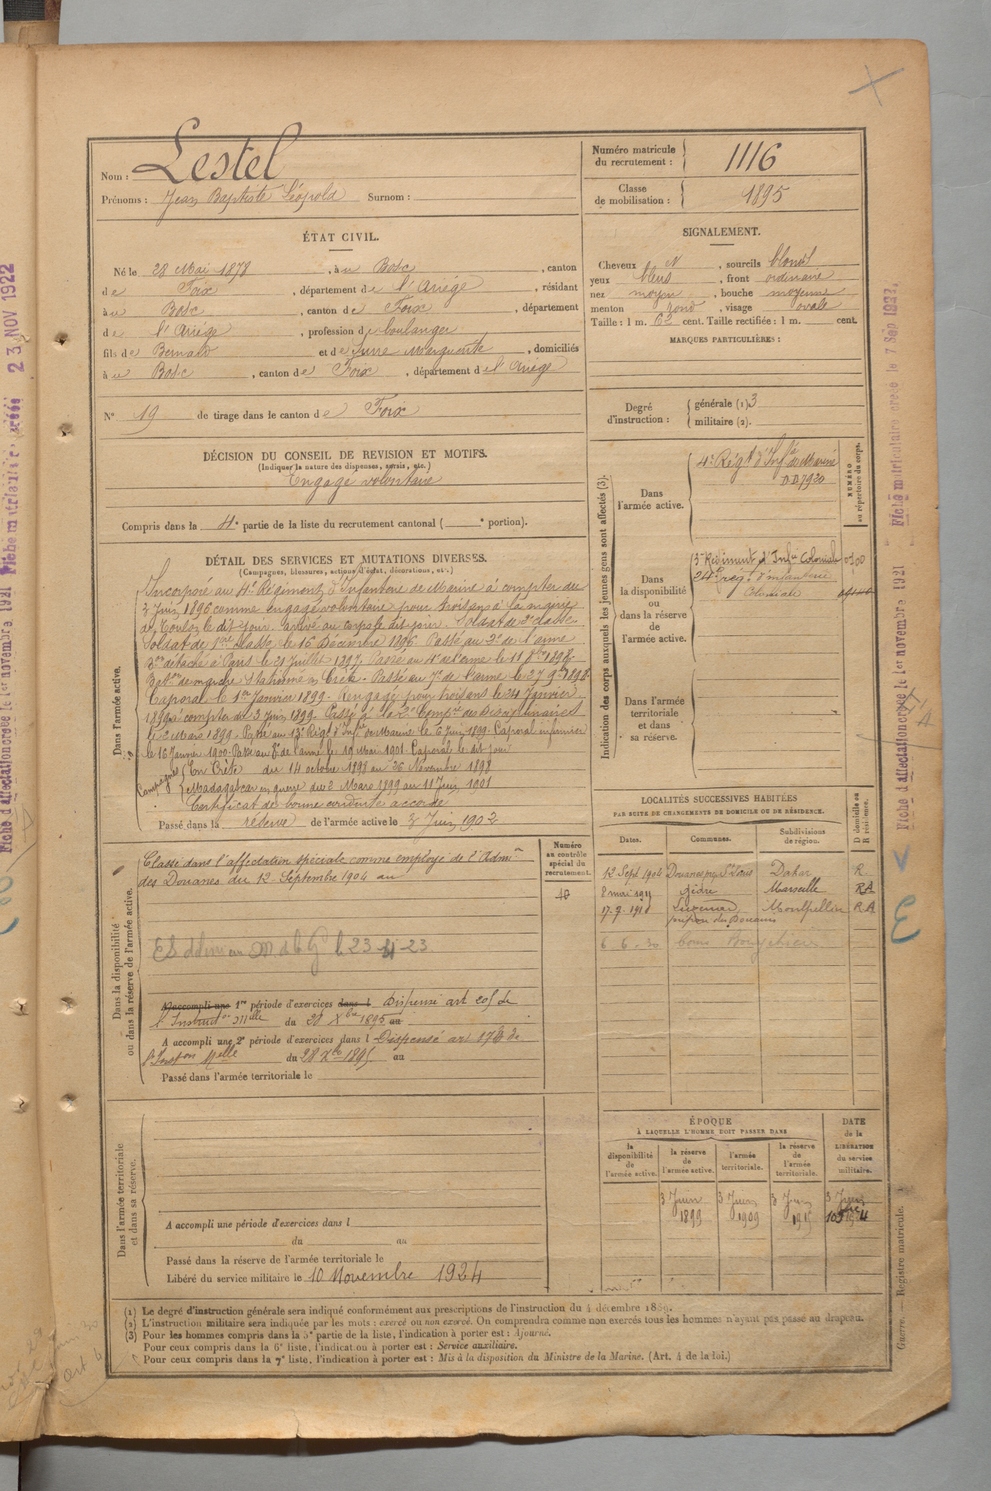 Nom : Lestel
Prénoms : Jean Baptiste Léopold Surnom :
Numéro matricule du recrutement : 1116
Classe de mobilisation : 1895
ÉTAT CIVIL.
Né le 28 Mai 1878, à u Bosc, canton
de Foix, département de l'Ariège, résidant
à u Bosc, canton de Foix, département
de l'Ariège, profession de boulanger
fils de Bernard et de Jurre Marguerite, domiciliés
à u Bosc, canton de Foix, département de l'Ariège
N° 19 de tirage dans le canton de Foix
SIGNALEMENT.
Cheveux N, sourcils blond
yeux bleus, front ordinaire
nez moyen, bouche moyenne
menton rond, visage ovale
Taille : 1 m. 62 cent. Taille rectifiée : 1 m. cent.
MARQUES PARTICULIÈRES :
Degré d'instruction : générale (1) 3
militaire (2).
DÉCISION DU CONSEIL DE REVISION ET MOTIFS.
(Indiquer la nature des dispenses, sursis, etc.)
Engagé volontaire
Compris dans la 4e partie de la liste du recrutement cantonal ( e portion).
Indication des corps auxquels les jeunes gens sont affectés (3).
NUMÉRO au répertoire du corps.
Dans l'armée active.
4e Régt d'Infie de Marine
7920
Dans la disponibilité ou dans la réserve de l'armée active.
3e Régiment d'Infie Coloniale 0300
24e rég. d'infanterie
Coloniale
Dans l'armée territoriale et dans sa réserve.
DÉTAIL DES SERVICES ET MUTATIONS DIVERSES.
(Campagnes, blessures, actions d'éclat, décorations, etc.)
Dans l'armée active.
Incorporé au 4e Régiment d'Infanterie de Marine à compter du
3 Juin 1896 comme engagé volontaire pour trois ans à la mairie
de Toulon le dit jour. Arrivé au corps le dit jour. Soldat de 2e classe
Soldat de 1ère classe le 16 Décembre 1896. Passé au 2e de l'arme
détaché à Paris le 21 Juillet 1897. Passé au 4e de l'arme le 11 8bre 1898.
Baton de marche stationné en Crète. Passé au 7e de l'arme le 27 9bre 1898
Caporal le 1er Janvier 1899. Rengagé pour trois ans le 24 Janvier
1899 à compter du 3 Juin 1899. Passé à la 2e Compie de Disciplinaires
le 2 Mars 1899. Passé au 13e Régt d'Infie de Marine le 6 Juin 1899. Caporal infirmier
le 16 Janvier 1900. Passé au 7e de l'arme le 19 Mai 1901. Caporal le dit jour
Campagnes En Crète du 14 octobre 1898 au 26 Novembre 1898
Madagascar en guerre du 2 Mars 1899 au 11 Juin 1901
Certificat de bonne conduite accordé
Passé dans la réserve de l'armée active le 3 Juin 1902
Dans la disponibilité ou dans la réserve de l'armée active.
Numéro au contrôle spécial du recrutement.
Classé dans l'affectation spéciale comme employé de l'Admon
des Douanes du 12 Septembre 1904 au
le 23-4-23
A accompli une 1re période d'exercices dans l Dispensé art 205 de
l'Instructon Mlle du 28 Xbre 1895 au
A accompli une 2e période d'exercices dans l Dispensé art
l'Inston Mlle du 28 Xbre 1895 au
Passé dans l'armée territoriale le
LOCALITÉS SUCCESSIVES HABITÉES
PAR SUITE DE CHANGEMENTS DE DOMICILE OU DE RÉSIDENCE.
Dates. Communes. Subdivisions de région. D domicile ou R résidence.
12 Sept 1904 Douanes St Louis Dakar R
8 mai 1911 Gèdre Marseille RA
17.9.191 Montpellier RA
préposé des Douanes
6-6-30
Dans l'armée territoriale et dans sa réserve.
A accompli une période d'exercices dans l
du au
Passé dans la réserve de l'armée territoriale le
Libéré du service militaire le 10 Novembre 1924
ÉPOQUE
À LAQUELLE L'HOMME DOIT PASSER DANS
la disponibilité de l'armée active. la réserve de l'armée active. l'armée territoriale. la réserve de l'armée territoriale. DATE de la LIBÉRATION du service militaire.
3 Juin 1899 3 Juin 1909 3 Juin 191 3 Juin
(1) Le degré d'instruction générale sera indiqué conformément aux prescriptions de l'instruction du 4 décembre 1889.
(2) L'instruction militaire sera indiquée par les mots : exercé ou non exercé. On comprendra comme non exercés tous les hommes n'ayant pas passé au drapeau.
(3) Pour les hommes compris dans la 5e partie de la liste, l'indication à porter est : Ajourné.
Pour ceux compris dans la 6e liste, l'indication à porter est : Service auxiliaire.
Pour ceux compris dans la 7e liste, l'indication à porter est : Mis à la disposition du Ministre de la Marine. (Art. 4 de la loi.)
Guerre. — Registre matricule.
Fiche d'affectation créée le 1er novembre 1921
Fiche matriculaire créée 23 NOV 1922
Fiche d'affectation créée le 1er novembre 1921
Fiche matriculaire créée le 7 Sep